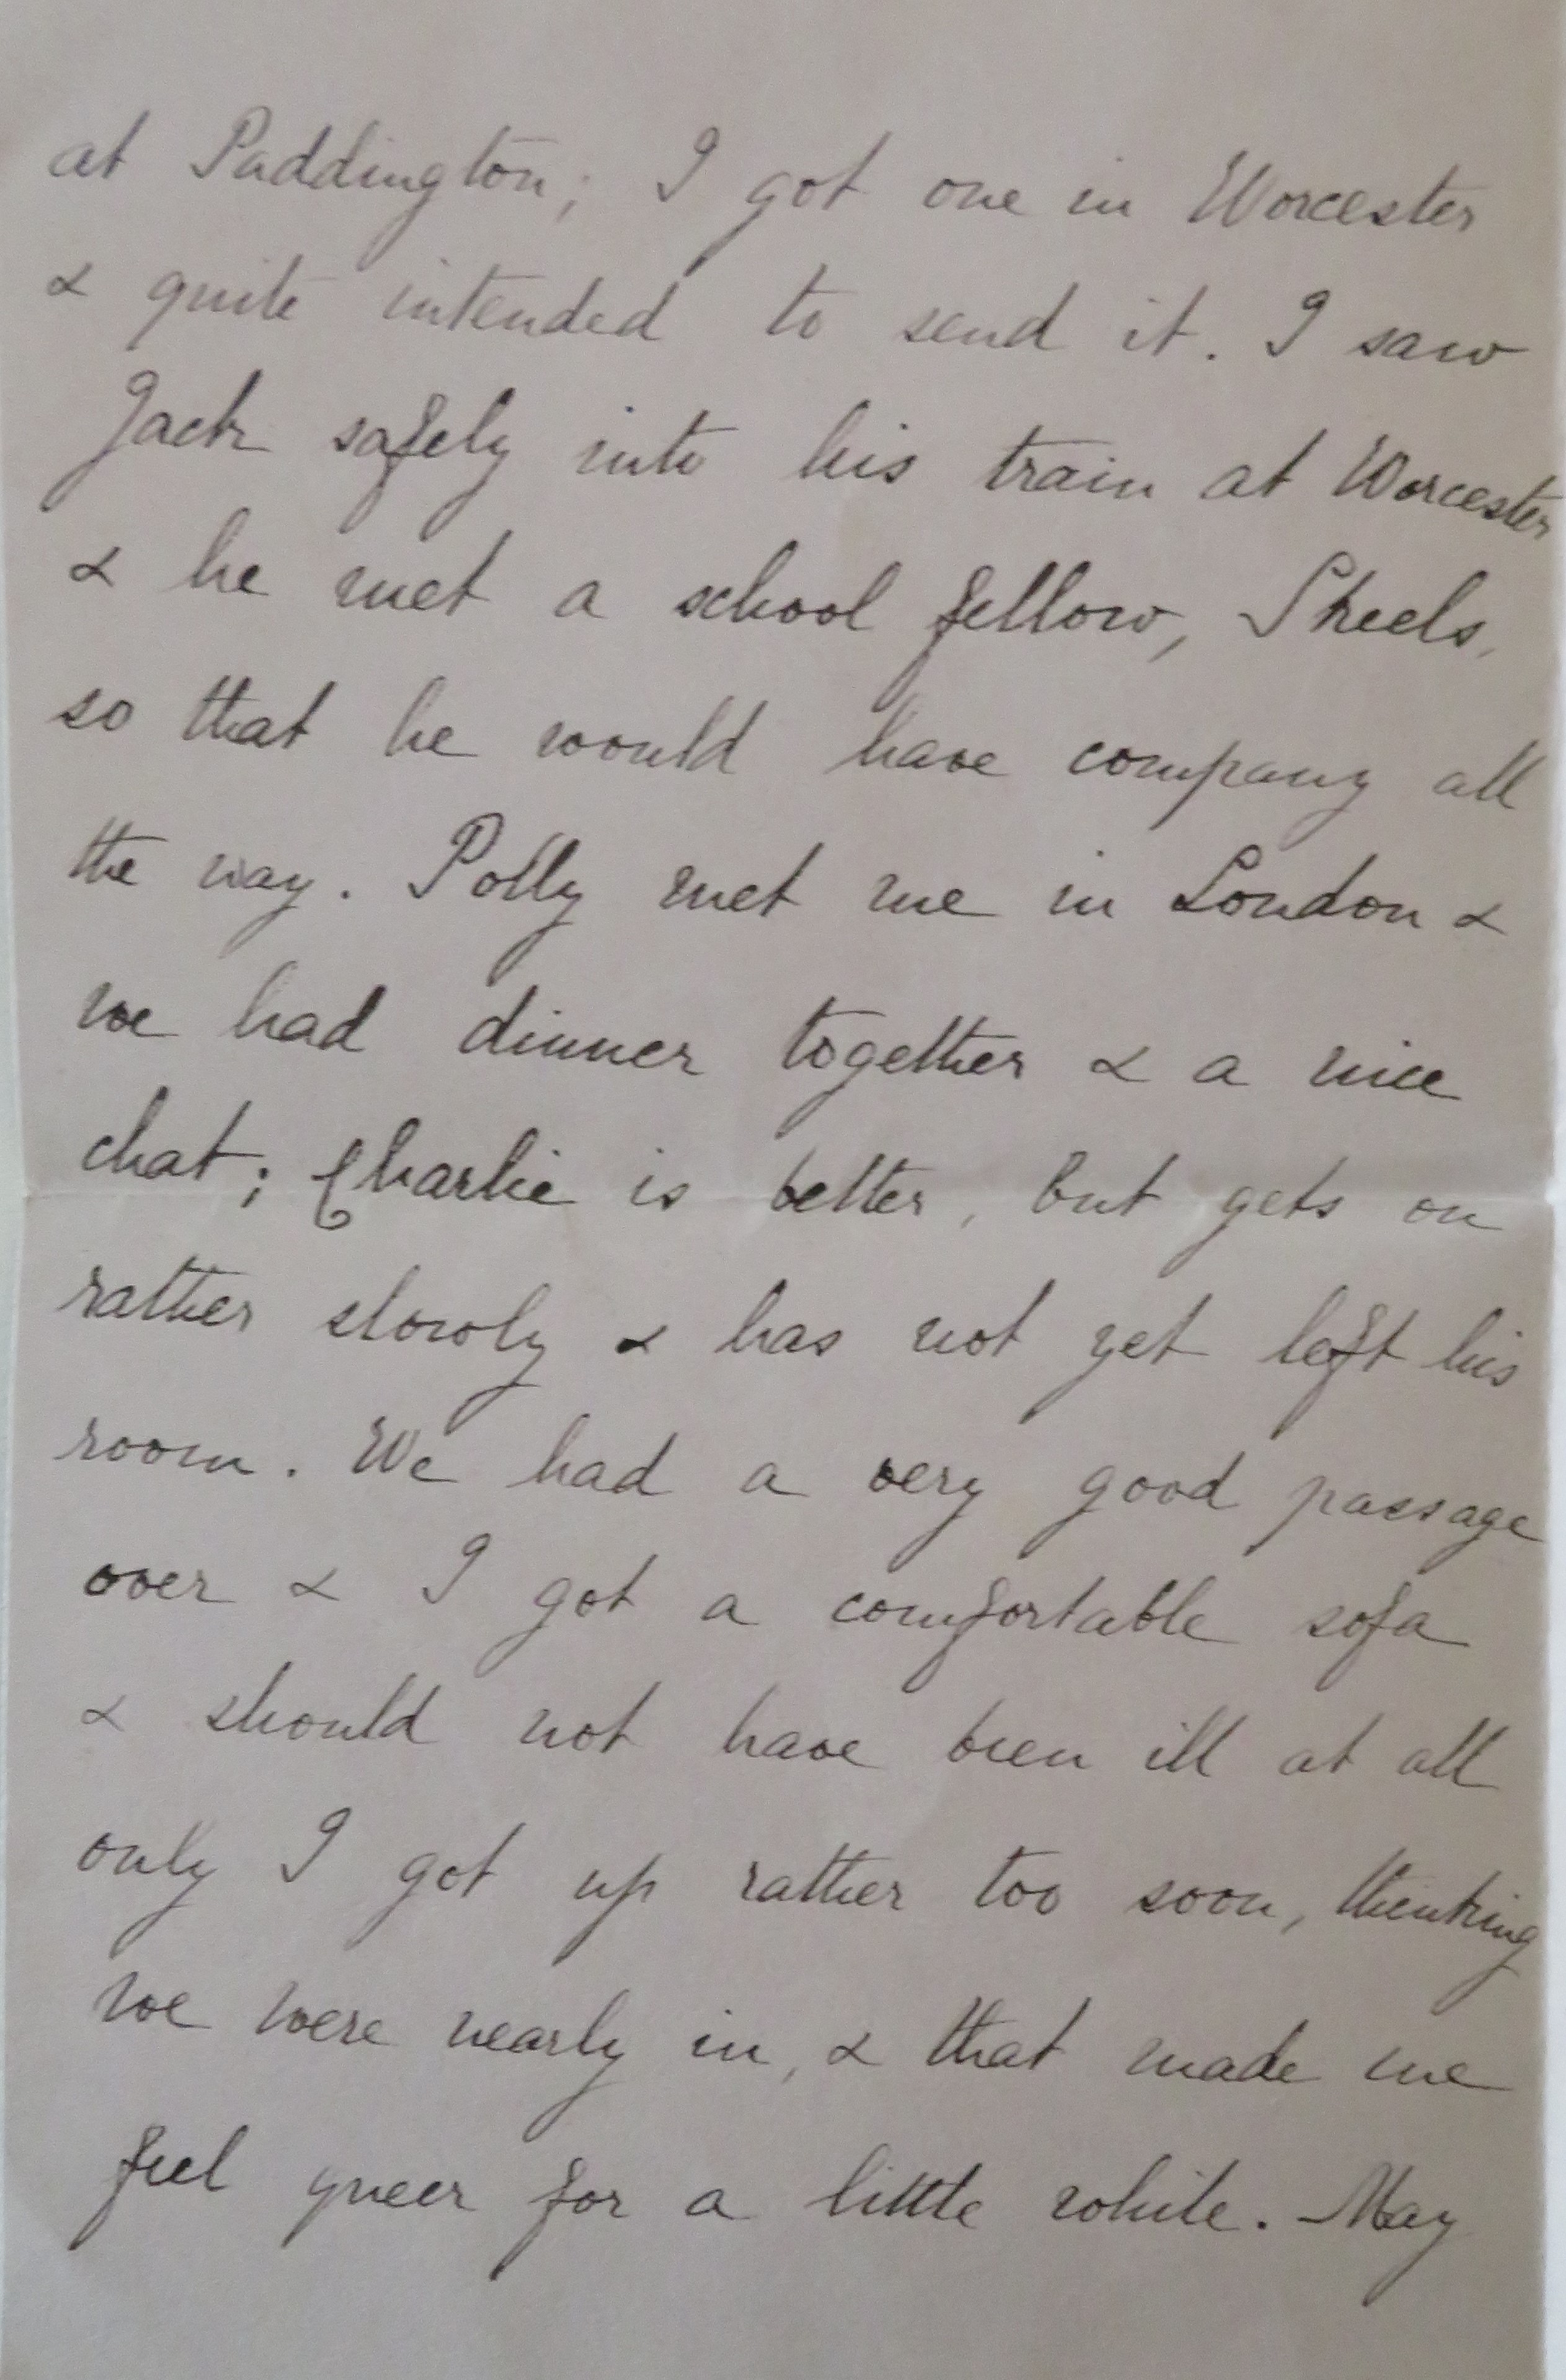 at Paddington; I got one in Worcester
& quite intended to send it. I saw
Jack safely into his train at Worcester
& he met a school fellow, Sheels,
so that he would have company all
the way. Polly met me in London &
we had dinner together & a nice
chat; Charlie is better, but gets on
rather slowly & has not yet left his
room. We had a very good passage
over & I got a comfortable sofa
& should not have been ill at all
only I got up rather too soon, thinking
we were nearly in, & that made me
feel queer for a little while. May